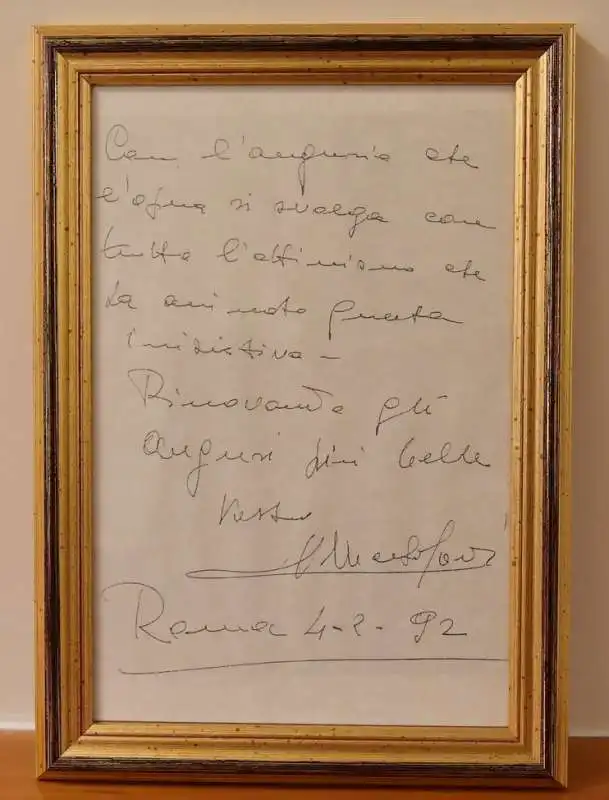 Con l'augurio che
l'opera si svolga con
tutto l'ottimismo che
ha animato questa
iniziativa -
Rinovando gli
auguri più belli
Vostro
Roma 4-2-92